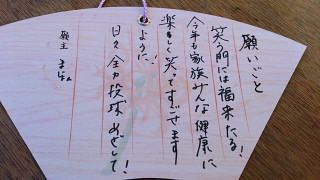 願いごと
笑う門には福来たる!
今年も家族みんな健康に
楽しく笑ってすごせます
ように!
日々全力投球 めざして!
願主